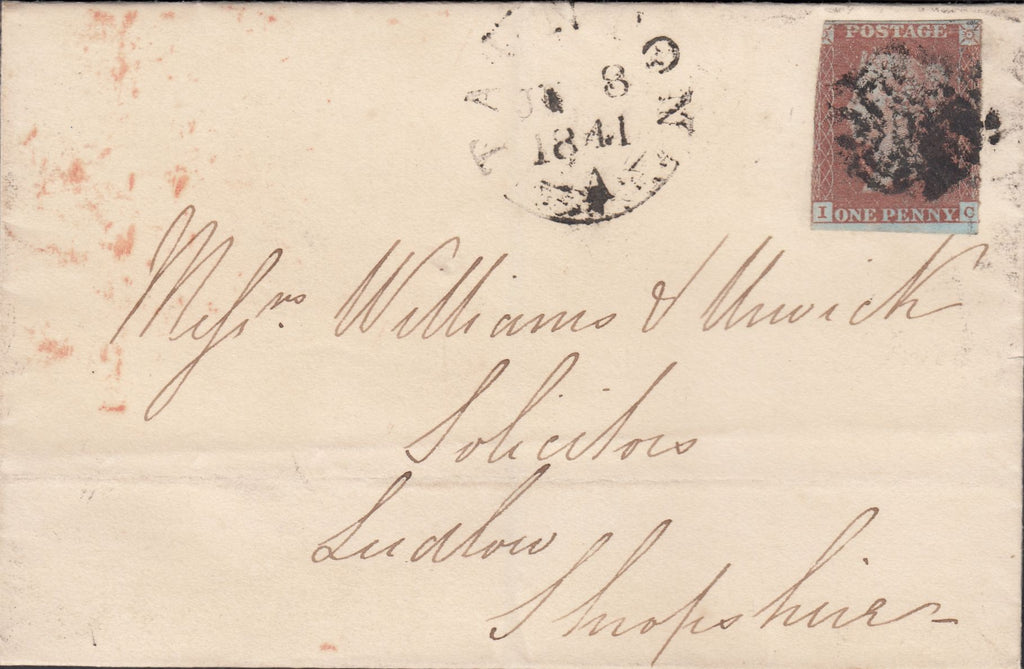 TAUNTON
8
1841
A
POSTAGE
I ONE PENNY. C
Messrs. Williams &
Solicitors
Ludlow
Shropshire